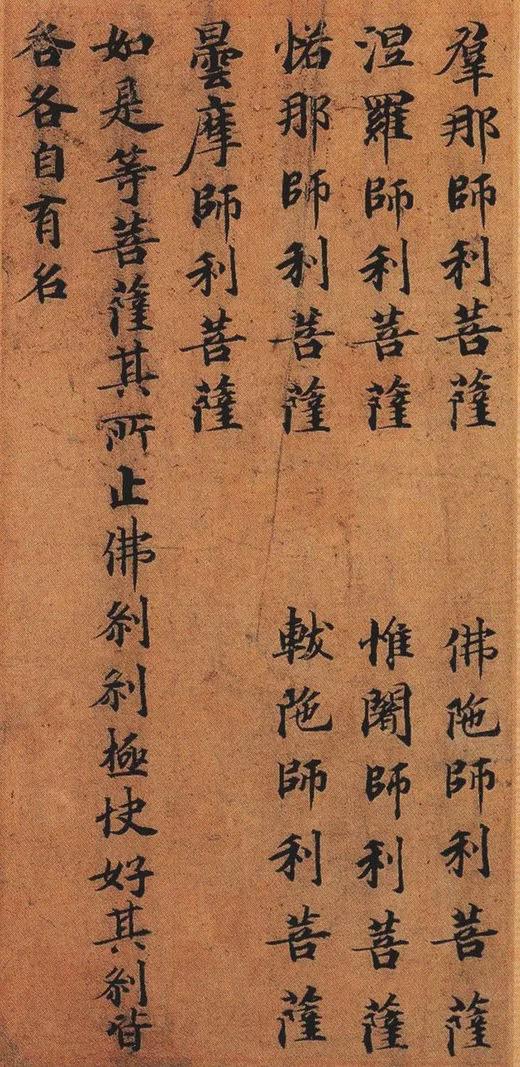 羣那師利菩薩 佛陁師利菩薩
涅羅師利菩薩 惟闍師利菩薩
那師利菩薩 軷陁師利菩薩
曇摩師利菩薩
如是等菩薩其所止佛刹刹極快好其刹皆
各各自有名